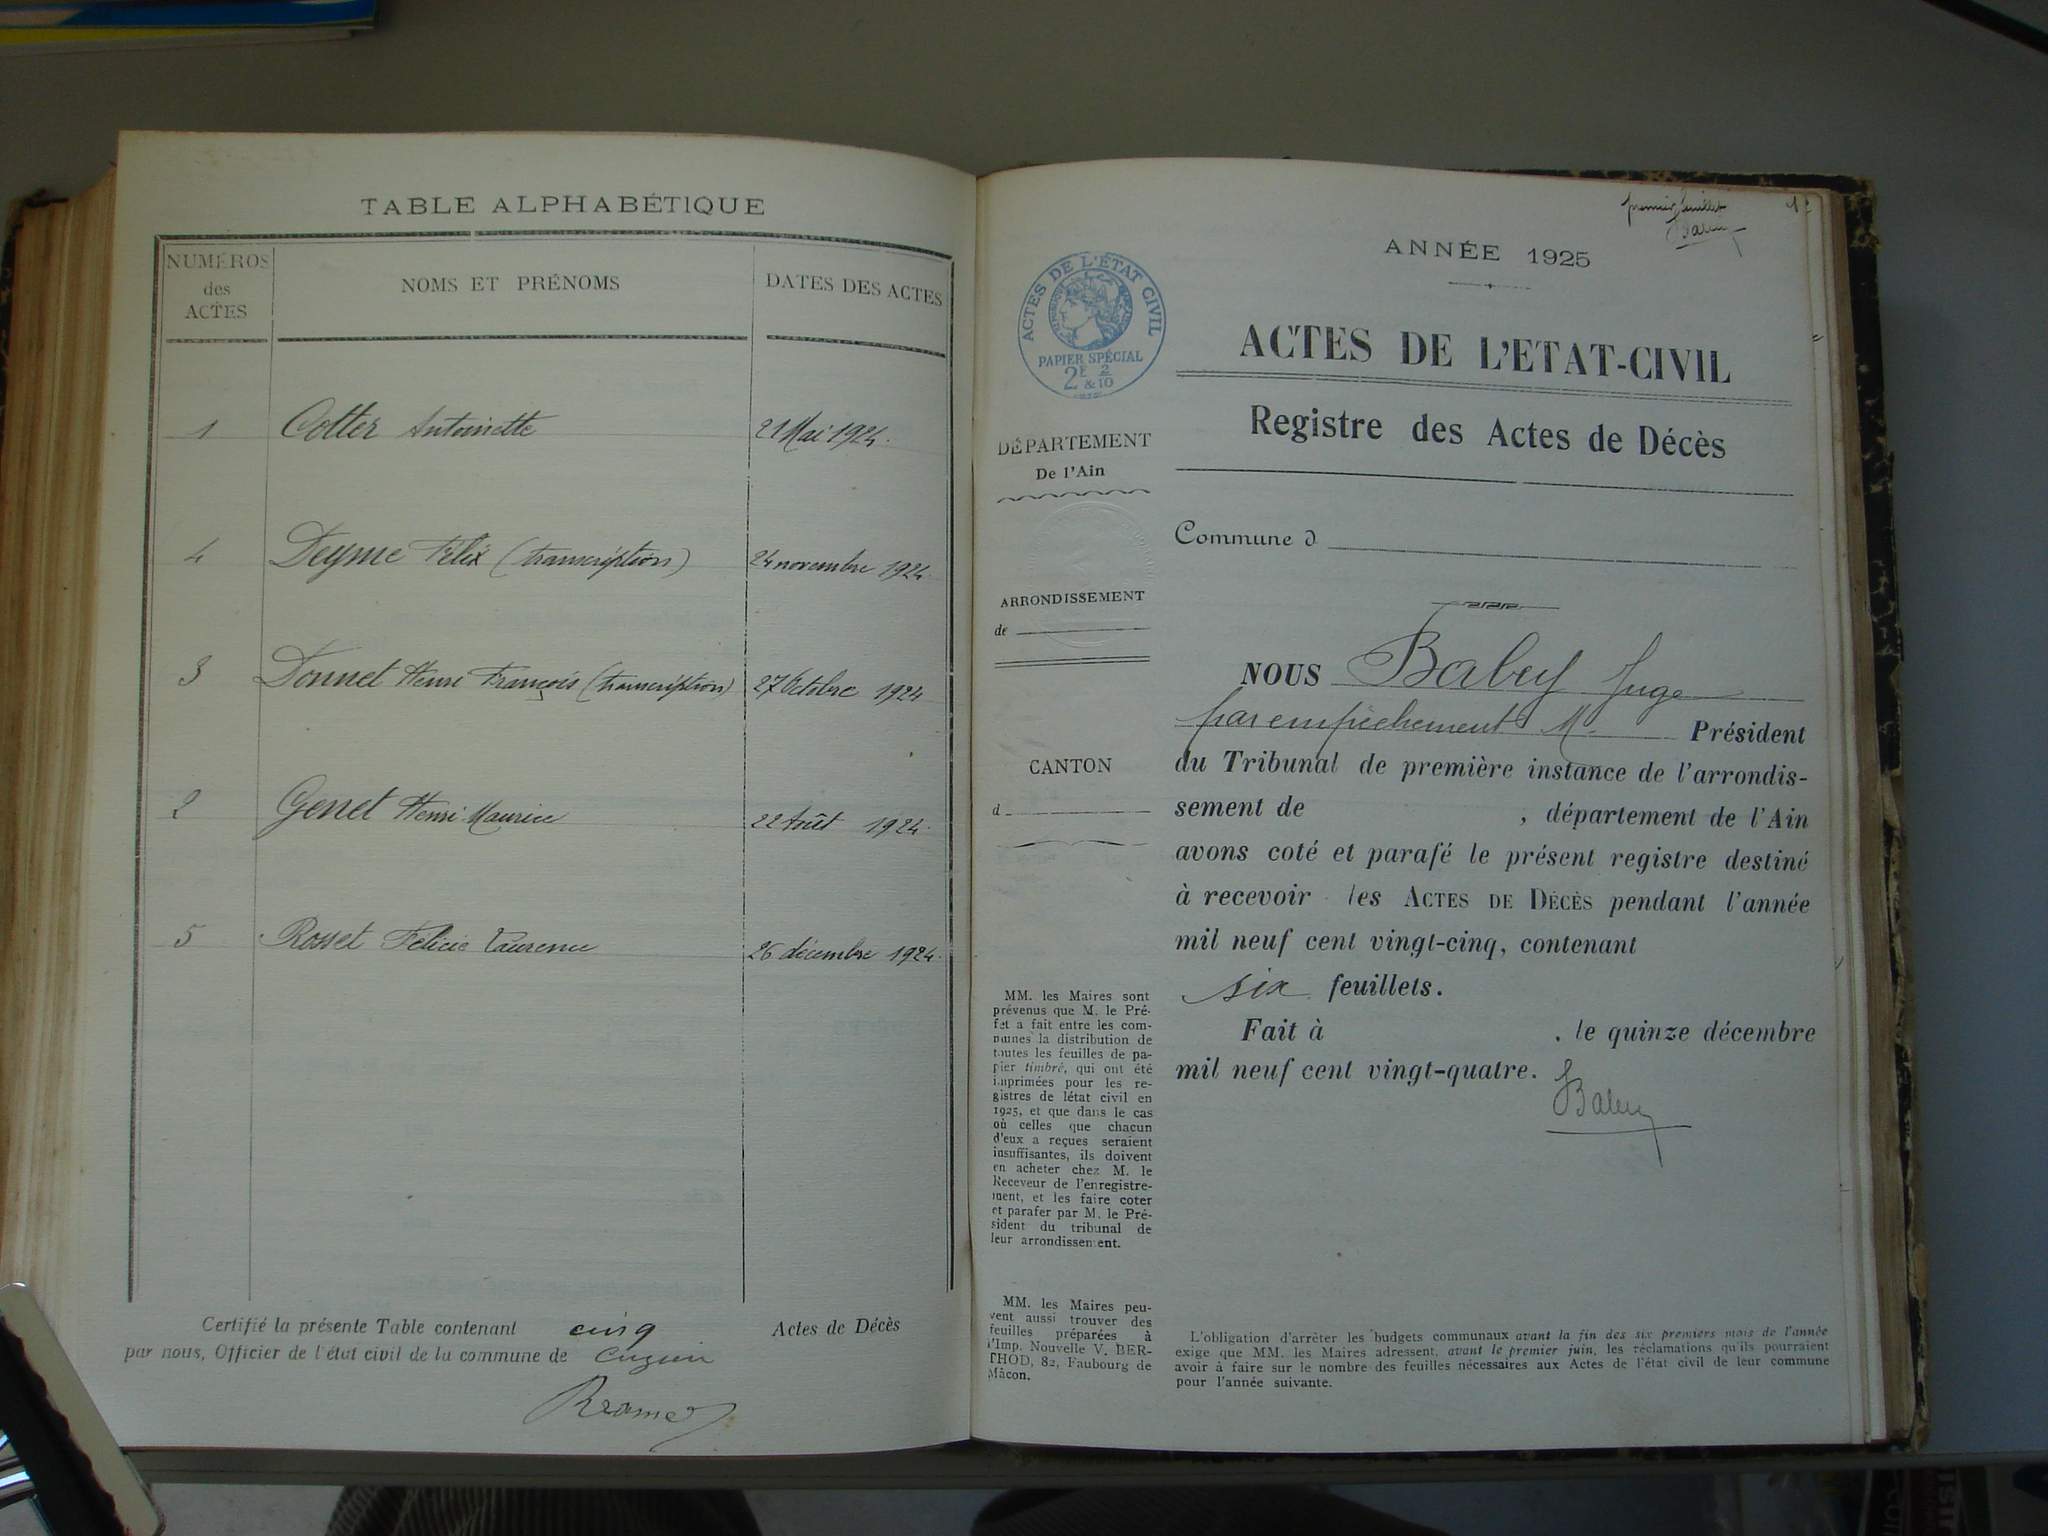 TABLE ALPHABÉTIQUE
NUMÉROS
des
ACTES
NOMS ET PRÉNOMS
DATES DES ACTES
1 Cotter Antoinette 21 Mai 1924.
4 Deyme Félix (transcription) 24 novembre 1924.
3 Donnet Henri François (transcription) 27 Octobre 1924
2 Genet Henri Maurice 22 Août 1924.
5 Rosset Félicie Laurence 26 décembre 1924.
Certifié la présente Table contenant cinq Actes de Décès
par nous, Officier de l'état civil de la commune de Cuzieu
premier feuillet 1er
Baley
ANNÉE 1925
ACTES DE L'ÉTAT CIVIL
PAPIER SPÉCIAL
2F 2
& 10
ACTES DE L'ETAT-CIVIL
Registre des Actes de Décès
DÉPARTEMENT
De l'Ain
Commune d
ARRONDISSEMENT
de
CANTON
d
NOUS Baley Juge
par empêchement M. Président
du Tribunal de première instance de l'arrondis-
sement de , département de l'Ain
avons coté et parafé le présent registre destiné
à recevoir les ACTES DE DÉCÈS pendant l'année
mil neuf cent vingt-cinq, contenant
six feuillets.
Fait à , le quinze décembre
mil neuf cent vingt-quatre.
Baley
MM. les Maires sont
prévenus que M. le Pré-
fet a fait entre les com-
munes la distribution de
toutes les feuilles de pa-
pier timbré, qui ont été
imprimées pour les re-
gistres de létat civil en
1925, et que dans le cas
où celles que chacun
d'eux a reçues seraient
insuffisantes, ils doivent
en acheter chez M. le
Receveur de l'enregistre-
ment, et les faire coter
et parafer par M. le Pré-
sident du tribunal de
leur arrondissement.
MM. les Maires peu-
vent aussi trouver des
feuilles préparées à
l'Imp. Nouvelle V. BER-
THOD, 82, Faubourg de
Mâcon.
L'obligation d'arrêter les budgets communaux avant la fin des six premiers mois de l'année
exige que MM. les Maires adressent, avant le premier juin, les réclamations qu'ils pourraient
avoir à faire sur le nombre des feuilles nécessaires aux Actes de l'état civil de leur commune
pour l'année suivante.